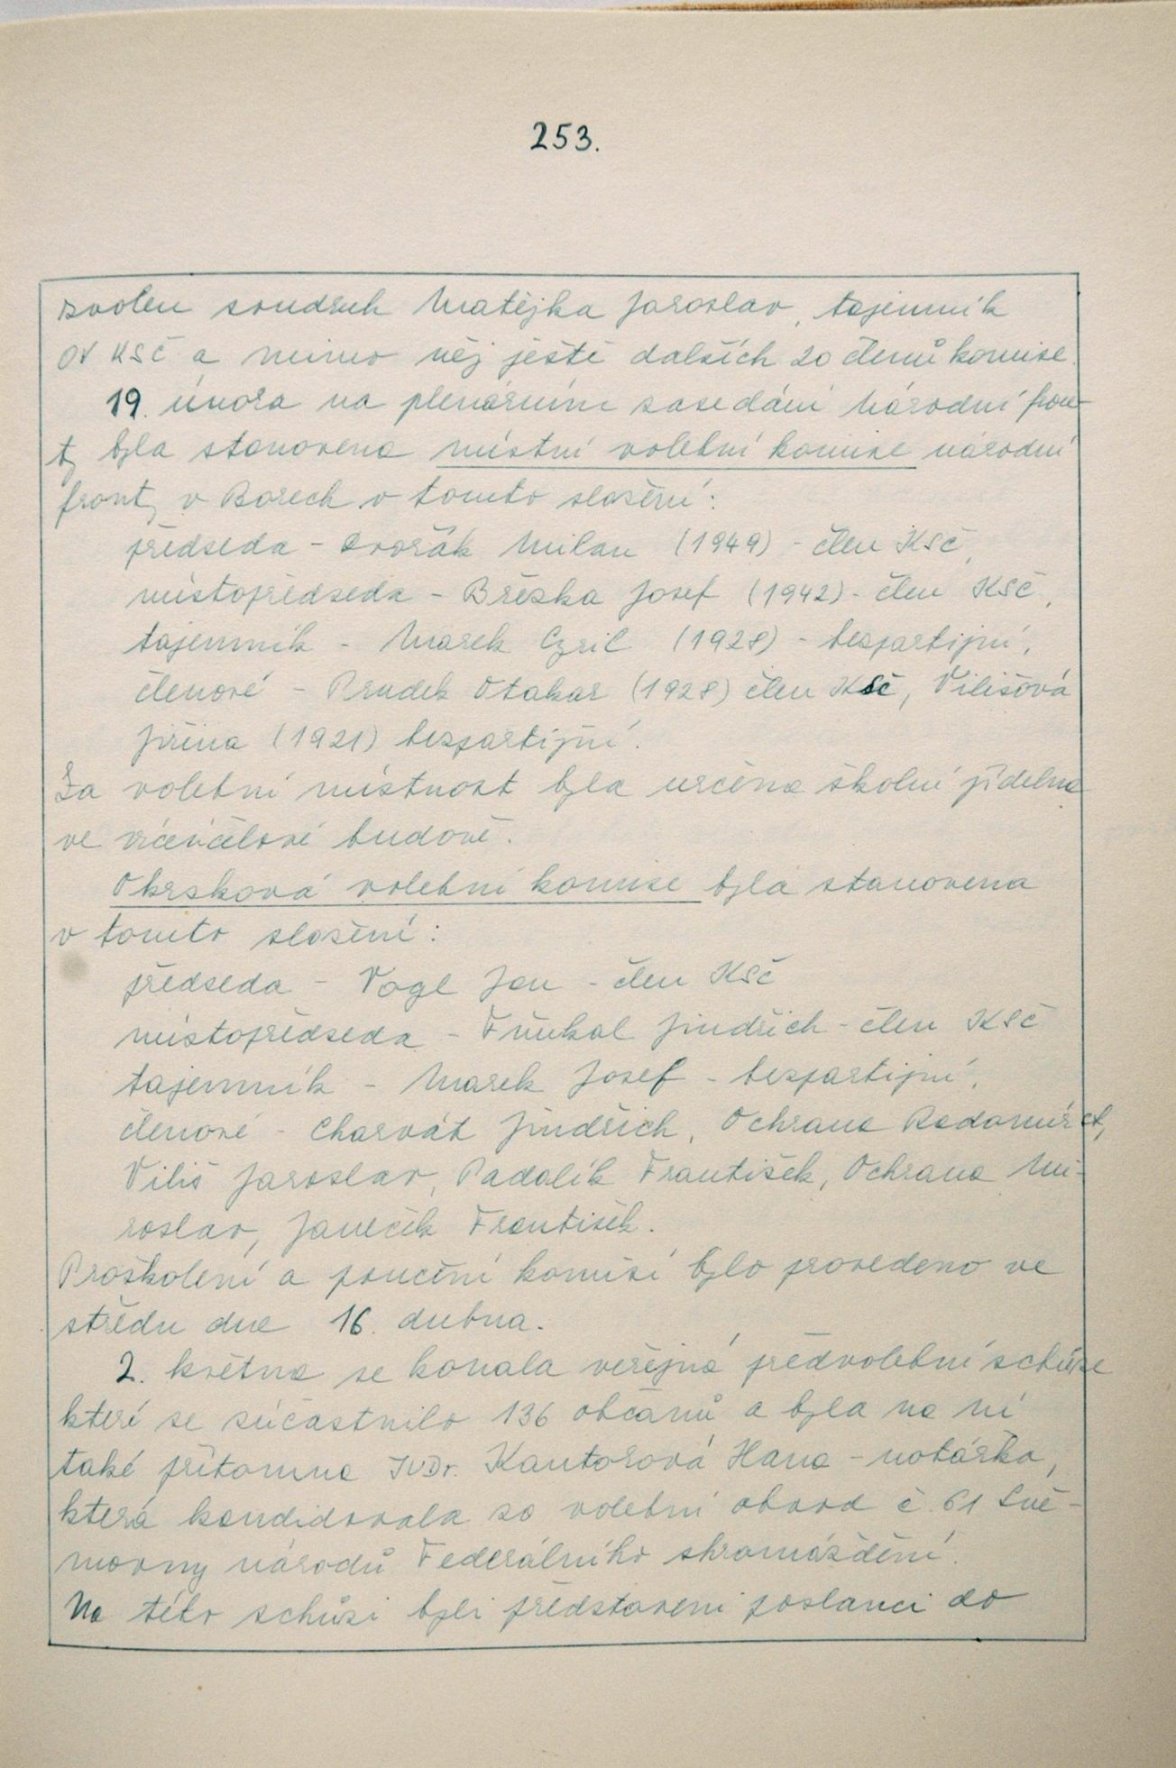 253.
zvolen soudruh Matějka Jaroslav, tajemník
OV KSČ a mimo něj ještě dalších 20 členů komise.
19. února na plenárním zasedání Národní fron-
ty byla stanovena místní volební komise národní
fronty v Borech v tomto složení:
předseda - Dvořák Milan (1949) - člen KSČ,
místopředseda - Březka Josef (1942) - člen KSČ,
tajemník - Marek Cyril (1928) - bezpartijní,
členové - Prudek Otakar (1928) člen KSČ, Vilišová
Jiřina (1921) bezpartijní.
Za volební místnost byla určena školní jídelna
ve víceúčelové budově.
Okrsková volební komise byla stanovena
v tomto složení:
předseda - Vogl Jan - člen KSČ
místopředseda - Juukal Jindřich - člen KSČ
tajemník - Marek Josef - bezpartijní,
členové - Charvát Jindřich, Ochrana Radomír st,
Viliš Jaroslav, Padalík František, Ochrana Mi-
roslav, Janeček František.
Proškolení a poučení komisí bylo provedeno ve
středu dne 16. dubna.
2. května se konala veřejná předvolební schůze
které se súčastnilo 136 občanů a byla na ní
také přítomna JUDr. Kantorová Hana - notářka,
která kandidovala za volební obvod č. 61 Sně-
movny národů Federálního shromáždění.
Na této schůzi byli představeni poslanci do